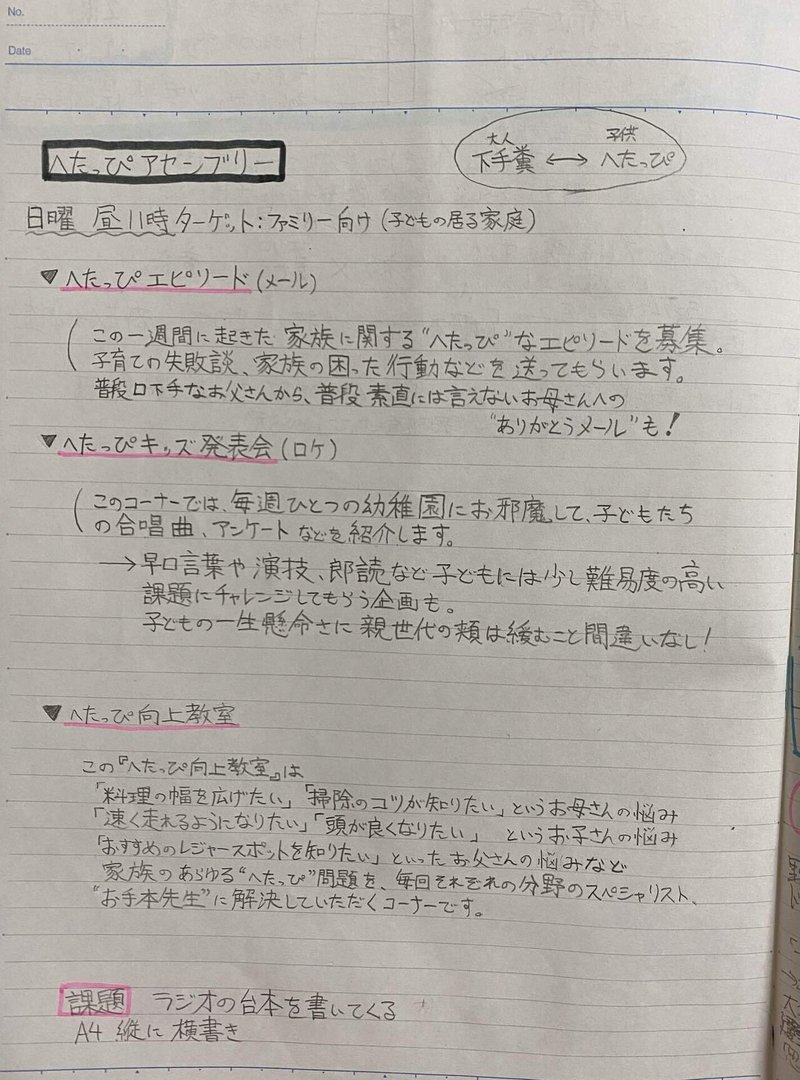 No.
Date
へたっぴアセンブリー
大人 子供
下手糞 ⟷ へたっぴ
日曜 昼11時 ターゲット:ファミリー向け(子どもの居る家庭)
▼へたっぴエピソード(メール)
この一週間に起きた 家族に関する“へたっぴ”なエピソードを募集。
子育ての失敗談、家族の困った行動などを送ってもらいます。
普段口下手なお父さんから、普段素直には言えないお母さんへの
“ありがとうメール”も!
▼へたっぴキッズ発表会(ロケ)
このコーナーでは、毎週ひとつの幼稚園にお邪魔して、子どもたち
の合唱曲、アンケートなどを紹介します。
→早口言葉や演技、郎読など子どもには少し難易度の高い
課題にチャレンジしてもらう企画も。
子どもの一生懸命さに親世代の頬は緩むこと間違いなし!
▼へたっぴ向上教室
この『へたっぴ向上教室』は
「料理の幅を広げたい」「掃除のコツが知りたい」というお母さんの悩み
「速く走れるようになりたい」「頭が良くなりたい」 というお子さんの悩み
「おすすめのレジャースポットを知りたい」といったお父さんの悩みなど
家族のあらゆる“へたっぴ”問題を、毎回それぞれの分野のスペシャリスト、
“お手本先生”に解決していただくコーナーです。
課題 ラジオの台本を書いてくる
A4 縦に横書き